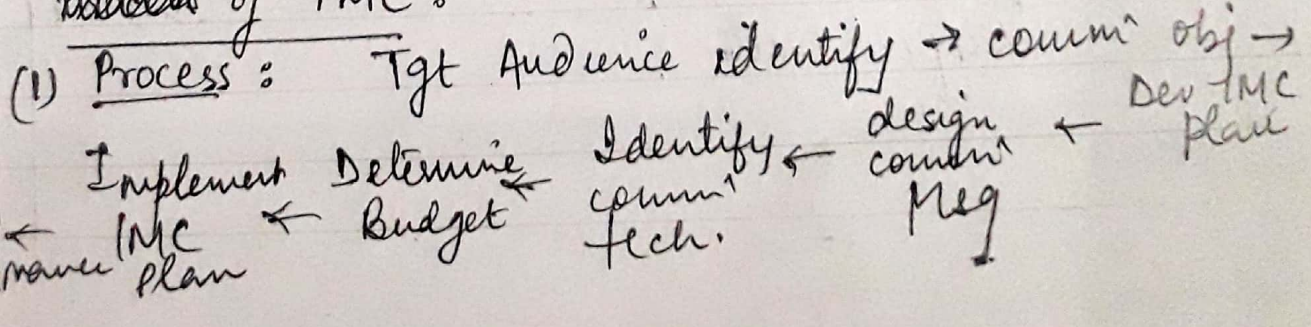 of IMC:
(1) Process: Tgt Audience identify → commⁿ obj →
Dev IMC plan
← design commⁿ Msg
← Identify commⁿ tech.
← Determine Budget
← Implement IMC plan
←